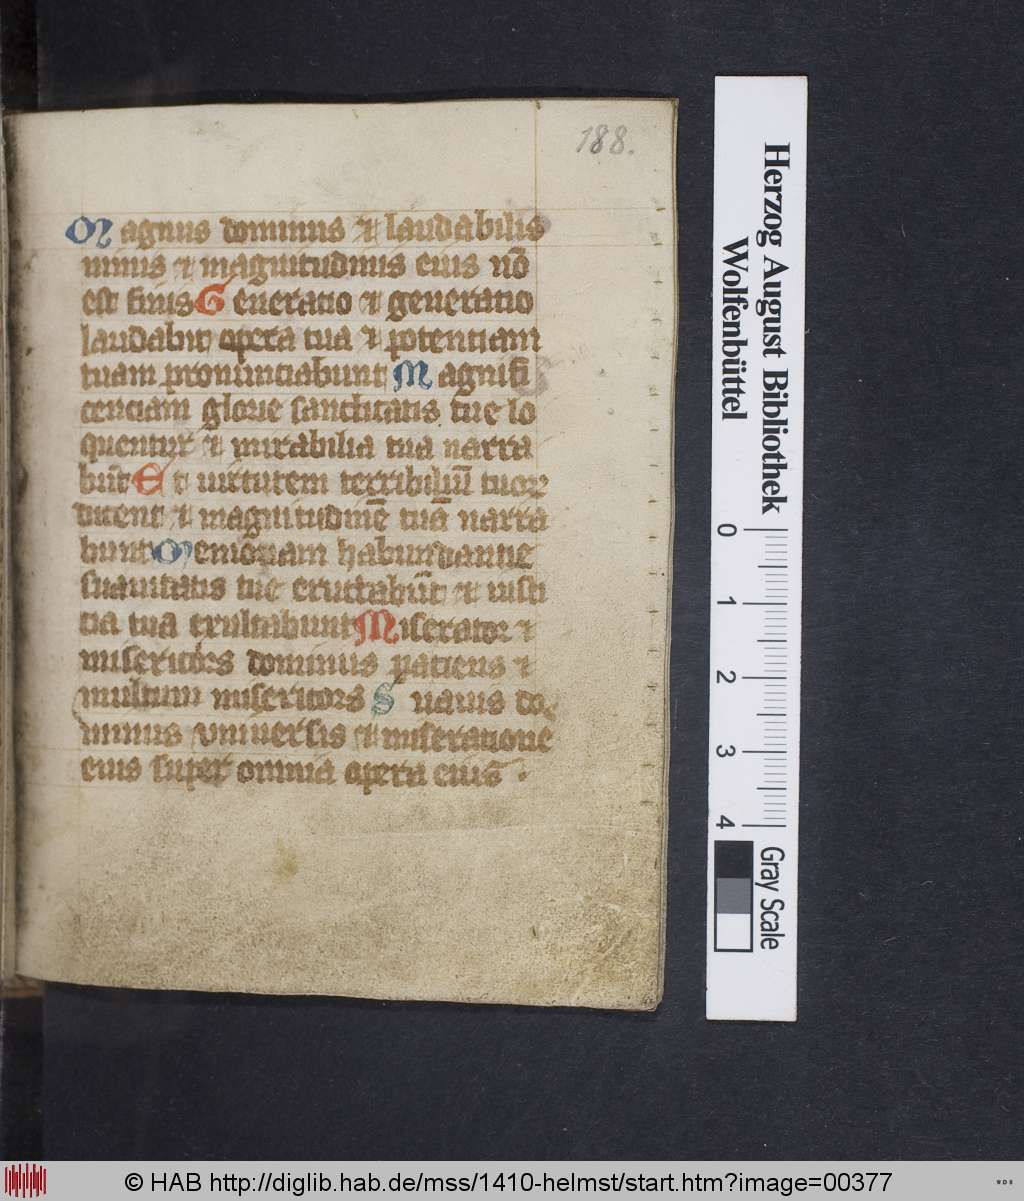 188.
Magnus dominus et laudabilis
nimis et magnitudinis eius nō
est finis Generatio et generatio
laudabit opera tua et potentiam
tuam pronunciabunt Magnifi
cenciam glorie sanctitatis tue lo
quentur et mirabilia tua narra
būt Et uirtutem terribiliū tuoꝝ
dicent et magnitudinē tuā narra
bunt Memoriam habundantie
suauitatis tue eructabūt et iusti
cia tua exultabunt Miserator et
misericors dominus patiens et
multum misericors Suauis do
minus vniuersis et miseratione
eius super omnia opera eius .
Herzog August Bibliothek
Wolfenbüttel
0 1 2 3 4
Gray Scale
© HAB http://diglib.hab.de/mss/1410-helmst/start.htm?image=00377